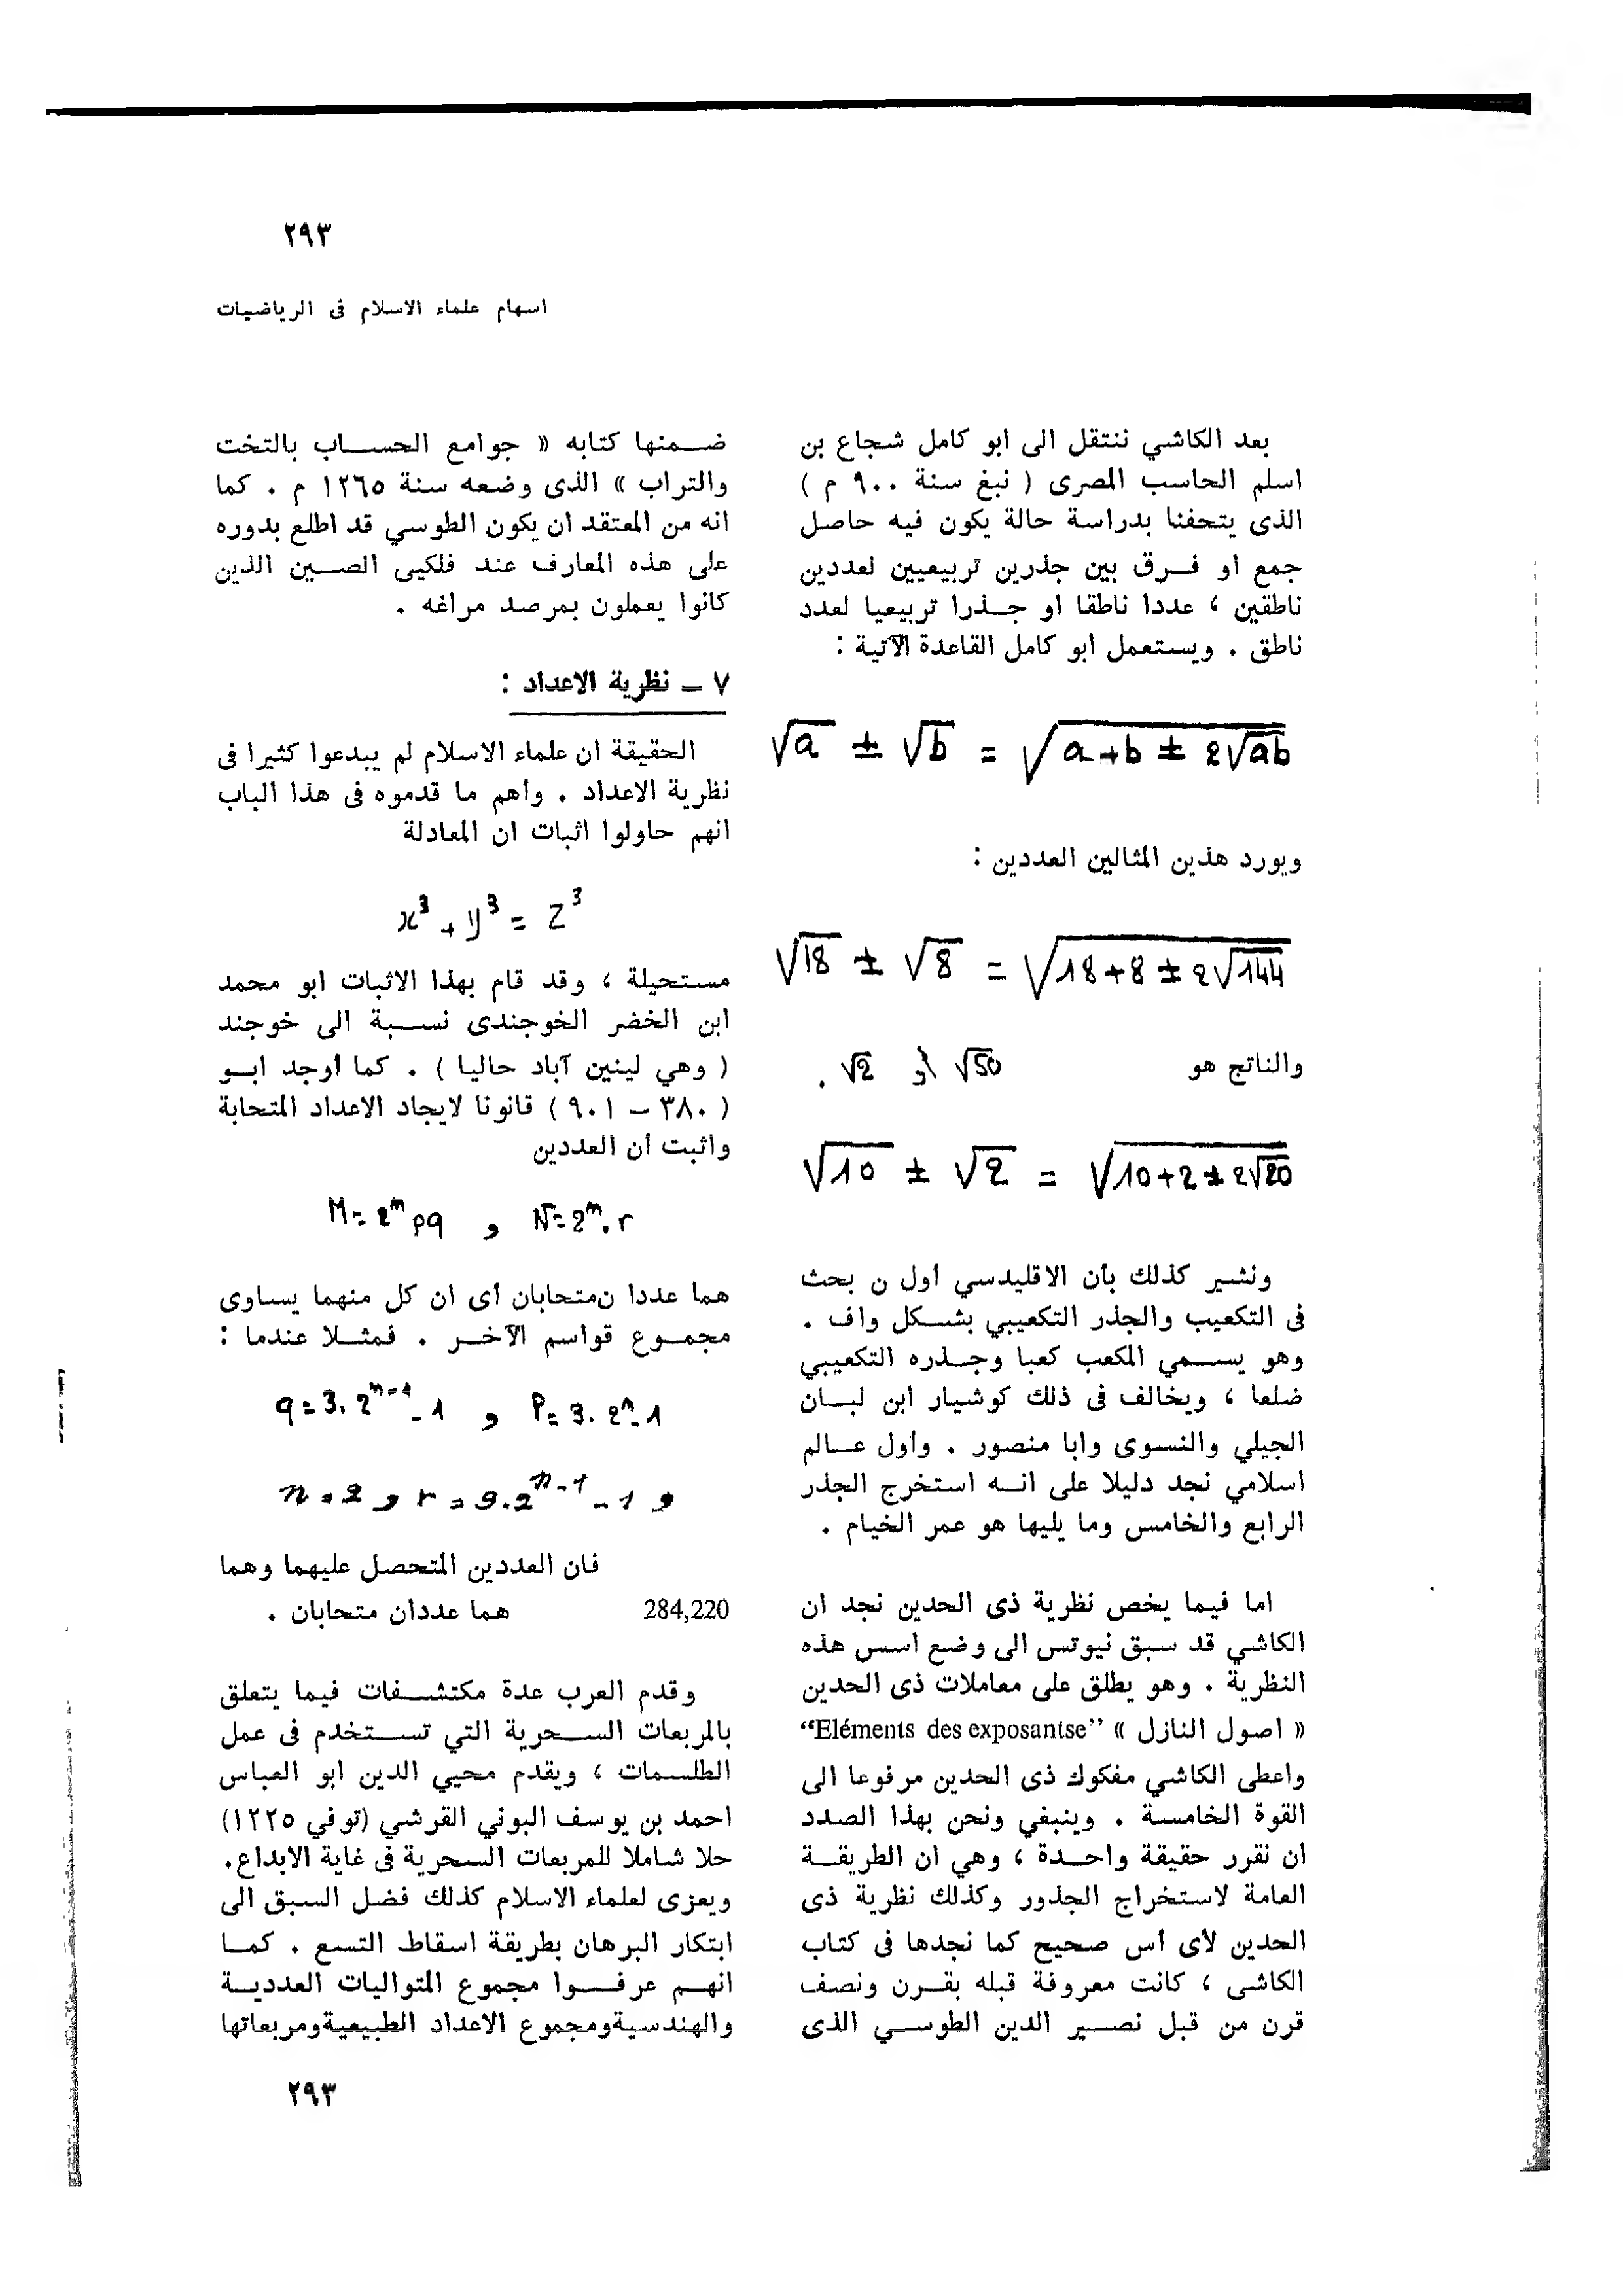 ٢٩٣
اسهام علماء الاسلام فى الرياضيات
بعد الكاشي ننتقل الى ابو كامل شجاع بن
اسلم الحاسب المصرى ( نبغ سنة ٩٠٠ م )
الذى يتحفنا بدراسة حالة يكون فيه حاصل
جمع او فرق بين جذرين تربيعيين لعددين
ناطقين ، عددا ناطقا او جذرا تربيعيا لعدد
ناطق . ويستعمل ابو كامل القاعدة الآتية :
√a ± √b = √(a+b ± 2√ab)
ويورد هذين المثالين العددين :
√18 ± √8 = √(18+8 ± 2√144)
والناتج هو √50 أو √2 .
√10 ± √2 = √(10+2 ± 2√20)
ونشير كذلك بأن الاقليدسي أول ن بحث
فى التكعيب والجذر التكعيبي بشكل واف .
وهو يسمي المكعب كعبا وجذره التكعيبي
ضلعا ، ويخالف فى ذلك كوشيار ابن لبان
الجيلي والنسوى وابا منصور . وأول عالم
اسلامي نجد دليلا على انه استخرج الجذر
الرابع والخامس وما يليها هو عمر الخيام .
اما فيما يخص نظرية ذى الحدين نجد ان
الكاشي قد سبق نيوتس الى وضع اسس هذه
النظرية . وهو يطلق على معاملات ذى الحدين
« اصول النازل » “Eléments des exposantse”
واعطى الكاشي مفكوك ذى الحدين مرفوعا الى
القوة الخامسة . وينبغي ونحن بهذا الصدد
ان نقرر حقيقة واحدة ، وهي ان الطريقة
العامة لاستخراج الجذور وكذلك نظرية ذى
الحدين لأى أس صحيح كما نجدها فى كتاب
الكاشى ، كانت معروفة قبله بقرن ونصف
قرن من قبل نصير الدين الطوسي الذى
ضمنها كتابه « جوامع الحساب بالتخت
والتراب » الذى وضعه سنة ١٢٦٥ م . كما
انه من المعتقد ان يكون الطوسي قد اطلع بدوره
على هذه المعارف عند فلكيى الصين الذين
كانوا يعملون بمرصد مراغه .
٧ ــ نظرية الاعداد :
الحقيقة ان علماء الاسلام لم يبدعوا كثيرا فى
نظرية الاعداد . واهم ما قدموه فى هذا الباب
انهم حاولوا اثبات ان المعادلة
x³ + y³ = z³
مستحيلة ، وقد قام بهذا الاثبات ابو محمد
ابن الخضر الخوجندى نسبة الى خوجند
( وهي لينين آباد حاليا ) . كما أوجد ابو
( ٣٨٠ – ٩٠١ ) قانونا لايجاد الاعداد المتحابة
واثبت أن العددين
M = 2ᵐpq و N = 2ᵐ.r
هما عددا ن‌متحابان أى ان كل منهما يساوى
مجموع قواسم الآخر . فمثلا عندما :
q = 3.2ⁿ⁻¹-1 و P = 3.2ⁿ-1
n = 2 و r = 9.2ⁿ⁻¹-1 و
فان العددين المتحصل عليهما وهما
284,220 هما عددان متحابان .
وقدم العرب عدة مكتشفات فيما يتعلق
بالمربعات السحرية التي تستخدم فى عمل
الطلسمات ، ويقدم محيي الدين ابو العباس
احمد بن يوسف البوني القرشي (توفي ١٢٢٥)
حلا شاملا للمربعات السحرية فى غاية الابداع.
ويعزى لعلماء الاسلام كذلك فضل السبق الى
ابتكار البرهان بطريقة اسقاط التسع . كما
انهم عرفوا مجموع المتواليات العددية
والهندسيةومجموع الاعداد الطبيعيةومربعاتها
٢٩٣